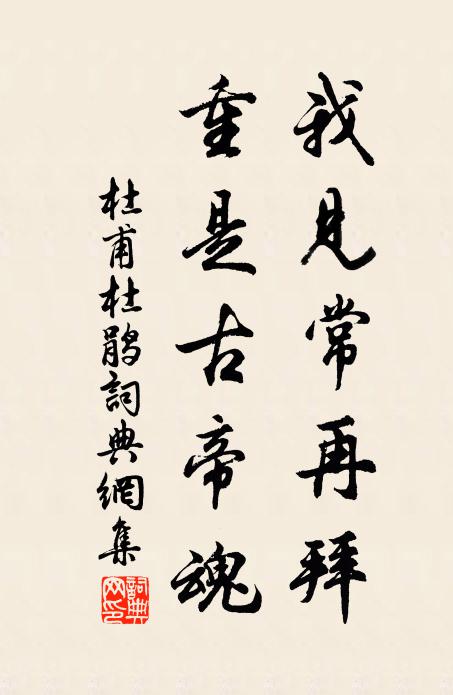 我見常再拜
重是古帝魂
杜甫杜鹃詞典網集
詞典網印